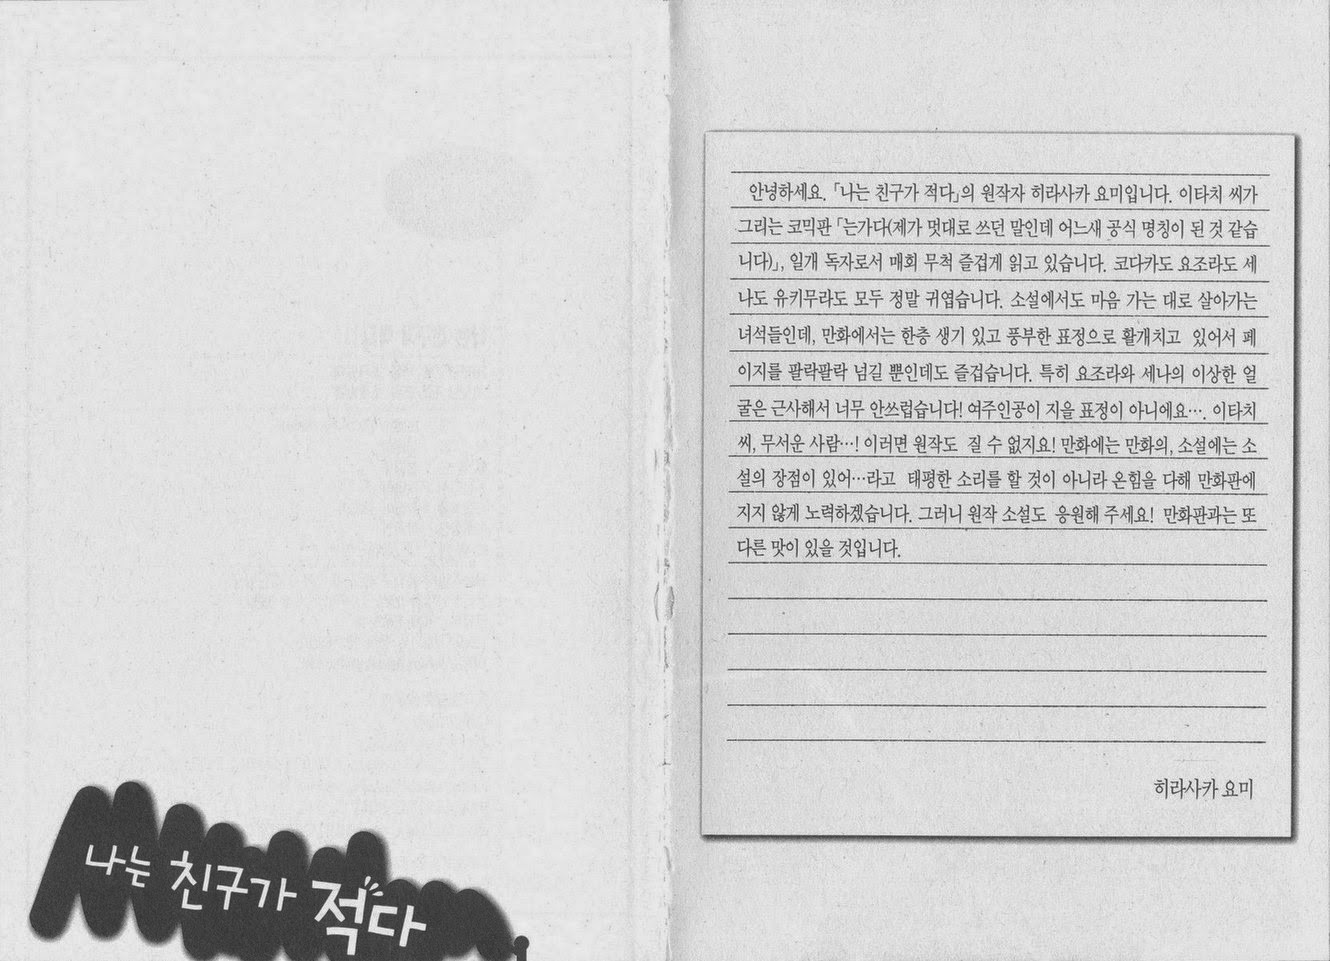 나는 친구가 적다
안녕하세요. 「나는 친구가 적다」의 원작자 히라사카 요미입니다. 이타치 씨가
그리는 코믹판 「는가다(제가 멋대로 쓰던 말인데 어느새 공식 명칭이 된 것 같습
니다)」, 일개 독자로서 매회 무척 즐겁게 읽고 있습니다. 코다카도 요조라도 세
나도 유키무라도 모두 정말 귀엽습니다. 소설에서도 마음 가는 대로 살아가는
녀석들인데, 만화에서는 한층 생기 있고 풍부한 표정으로 활개치고 있어서 페
이지를 팔락팔락 넘길 뿐인데도 즐겁습니다. 특히 요조라와 세나의 이상한 얼
굴은 근사해서 너무 안쓰럽습니다! 여주인공이 지을 표정이 아니에요…. 이타치
씨, 무서운 사람…! 이러면 원작도 질 수 없지요! 만화에는 만화의, 소설에는 소
설의 장점이 있어…라고 태평한 소리를 할 것이 아니라 온힘을 다해 만화판에
지지 않게 노력하겠습니다. 그러니 원작 소설도 응원해 주세요! 만화판과는 또
다른 맛이 있을 것입니다.
히라사카 요미